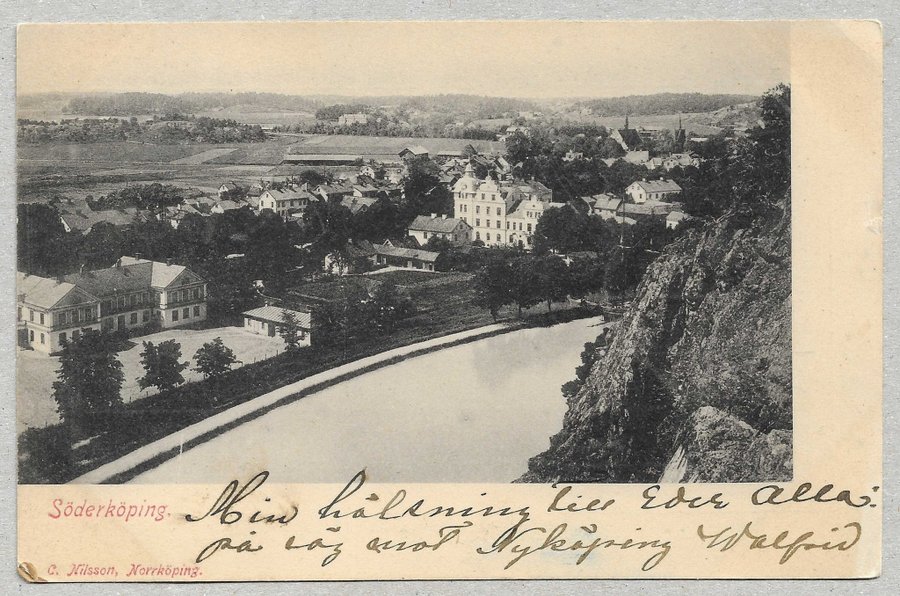 Söderköping.
Min hälsning till Eder Alla:
på väg mot Nyköping Walfrid
C. Nilsson, Norrköping.